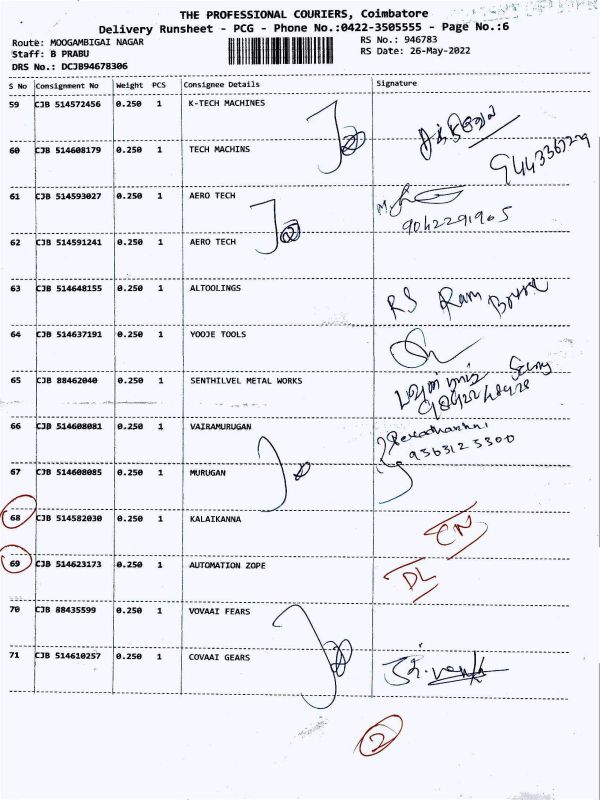 THE PROFESSIONAL COURIERS, Coimbatore
Delivery Runsheet - PCG - Phone No.:0422-3505555 - Page No.:6
Route: MOOGAMBIGAI NAGAR
RS No.: 946783
Staff: B PRABU
RS Date: 26-May-2022
DRS No.: DCJB94678306
S No Consignment No Weight PCS Consignee Details Signature
59 CJB 514572456 0.250 1 K-TECH MACHINES
60 CJB 514608179 0.250 1 TECH MACHINS
61 CJB 514593027 0.250 1 AERO TECH
9042291905
62 CJB 514591241 0.250 1 AERO TECH
63 CJB 514648155 0.250 1 ALTOOLINGS
RS Ram
64 CJB 514637191 0.250 1 YOOJE TOOLS
65 CJB 88462040 0.250 1 SENTHILVEL METAL WORKS
66 CJB 514608081 0.250 1 VAIRAMURUGAN
9363125300
67 CJB 514608085 0.250 1 MURUGAN
68 CJB 514582030 0.250 1 KALAIKANNA
CN
69 CJB 514623173 0.250 1 AUTOMATION ZOPE
DL
70 CJB 88435599 0.250 1 VOVAAI FEARS
71 CJB 514610257 0.250 1 COVAAI GEARS
2